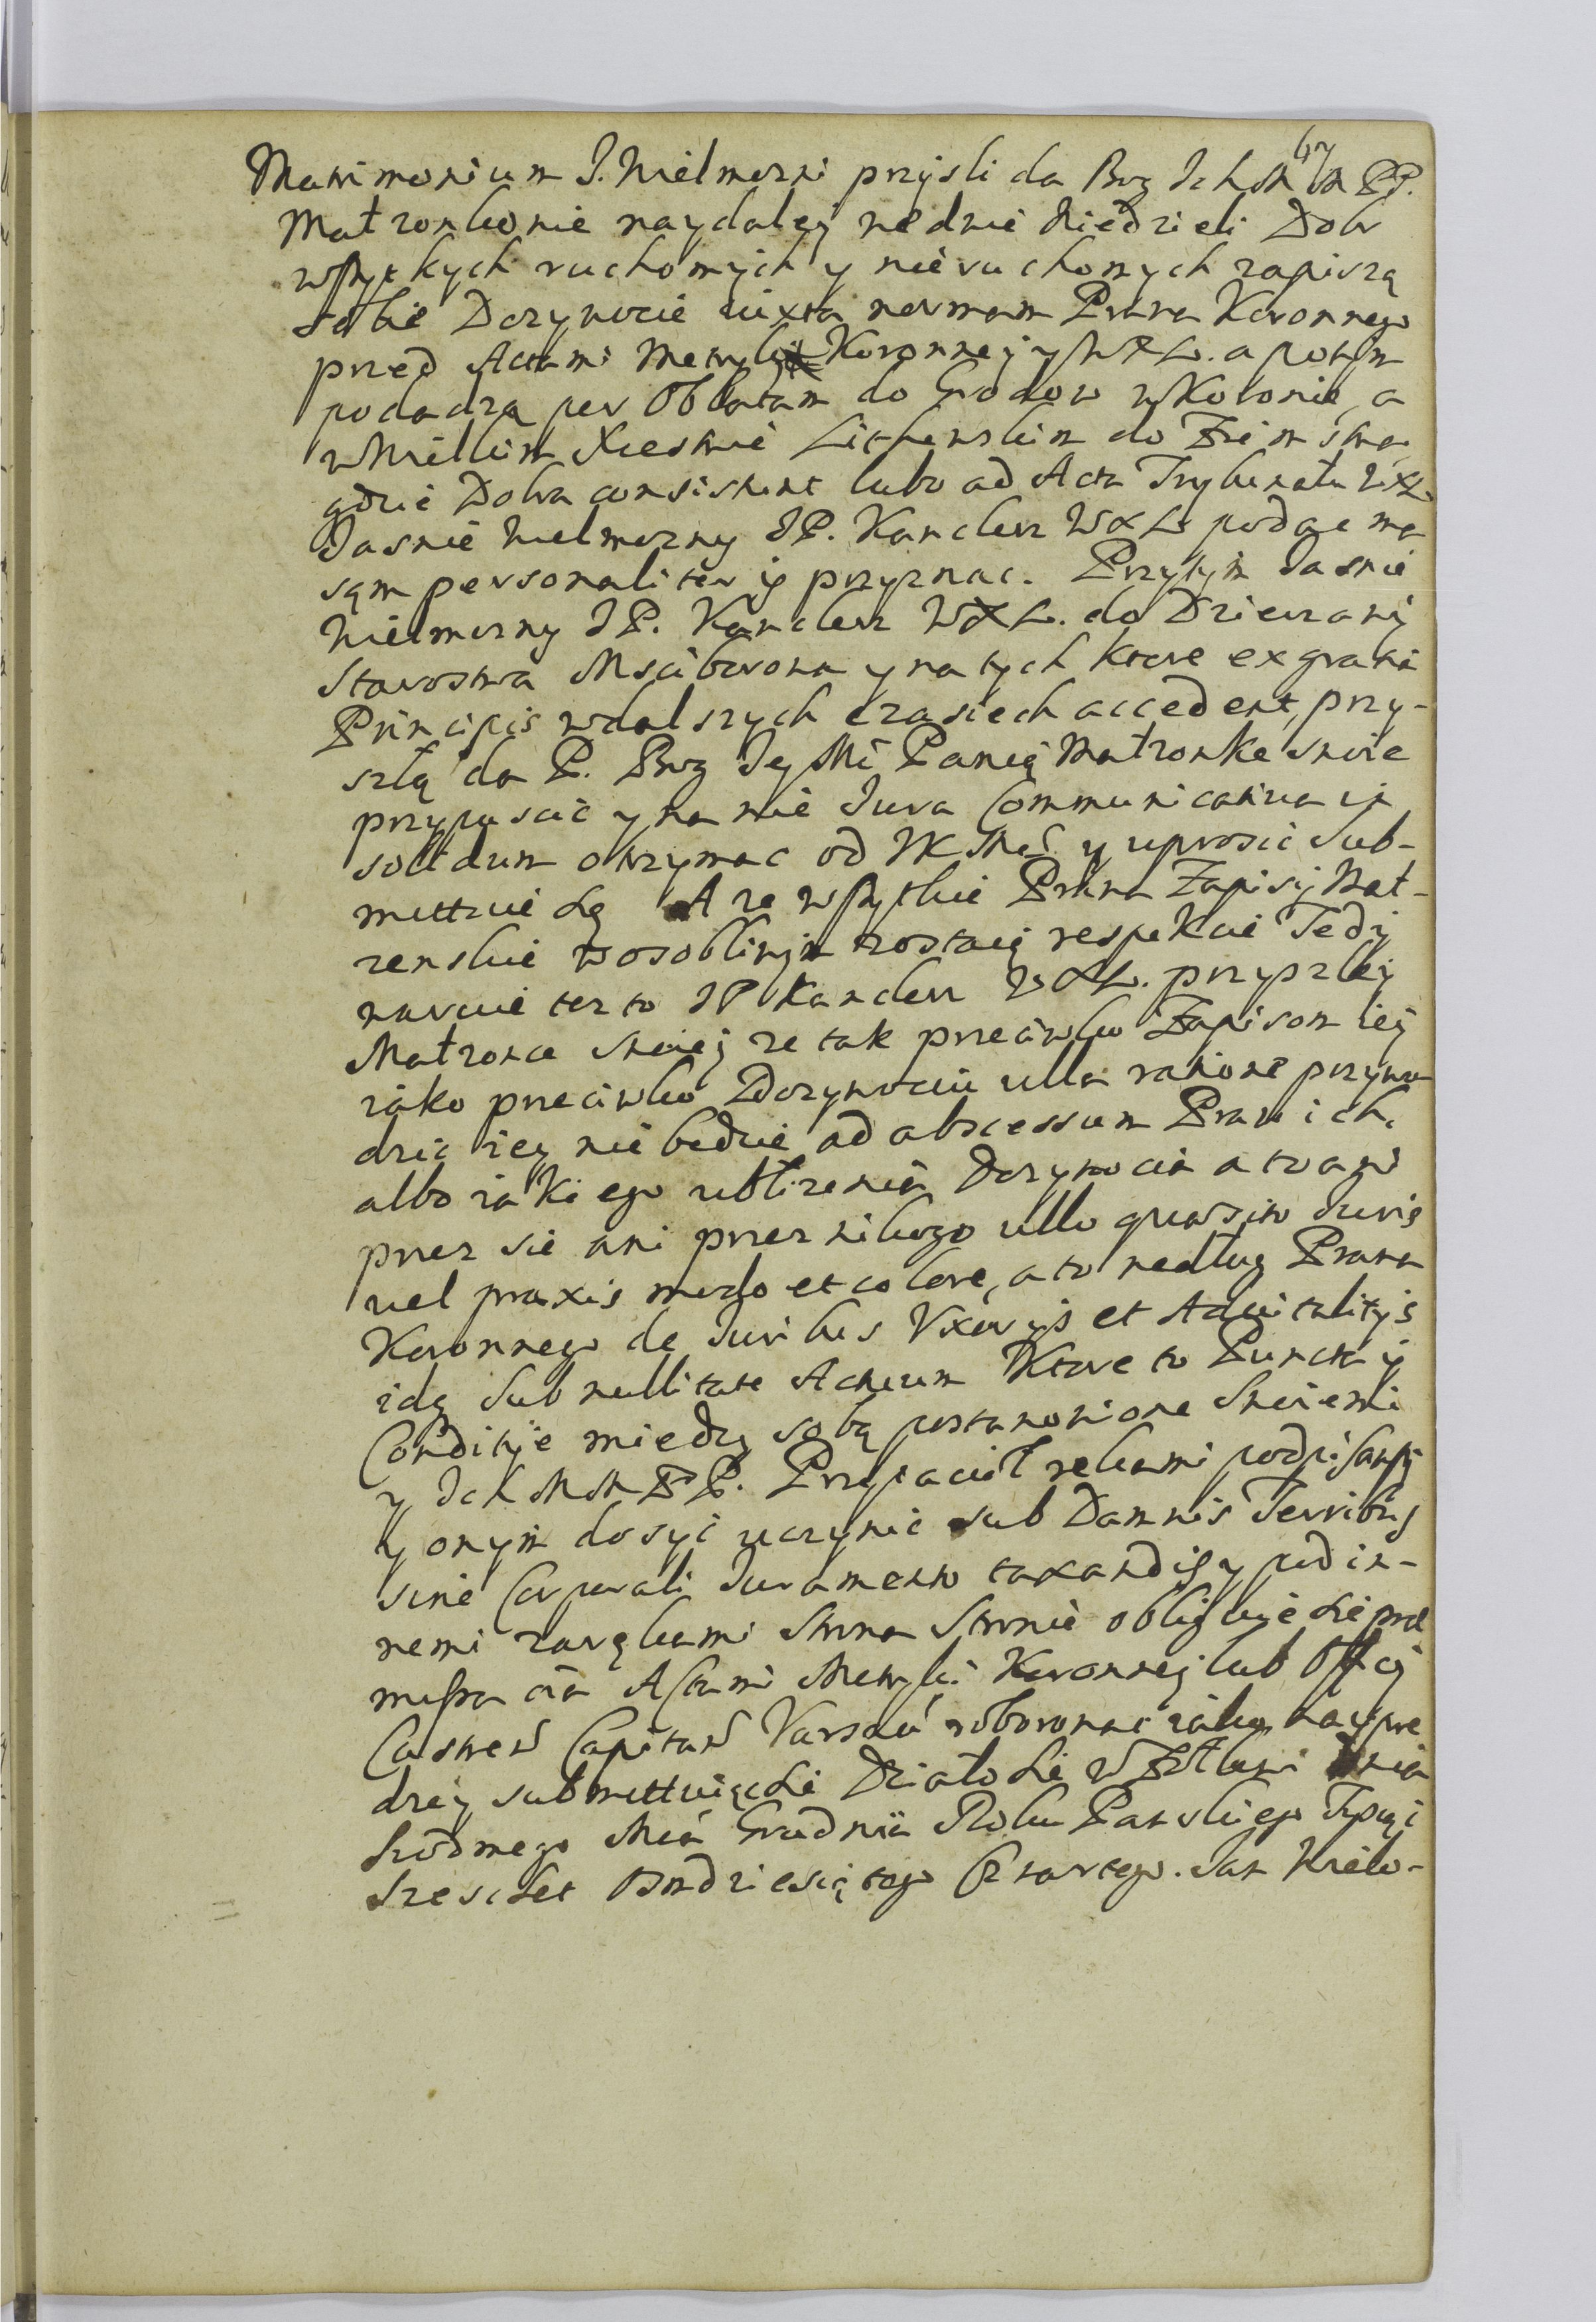 Matrimonium J. Wielmozni przÿsli da Bog Ich M M PP.
Małzonkowie naydaley we dwie Niedzieli Dobr
wszytkych ruchomÿch y nieruchomych zapiszą
sobie Dozywocie iuxta normam Prawa Koronnego
przed Actami Metryki Koronney y WXL. a potym
podadzą per Oblatam do Grodow w Koronie, a
w Wielkim Xiestwie Litewskim do Ziemstwa
gdzie Dobra consistunt lubo ad Acta Trybunału WXL.
Jasnie Wielmozny JP. Kanclerz WXL podac ma
sąm personaliter y przyznac. Przytym Jasnie
Wielmozny JP. Kanclerz WXL. do Dzierzawÿ
Starostwa Msciborowa y na tych ktore ex gratia
Principis w dalszych czasiech accedent, przy-
szłą da P. Bog JeyMć Panią Małzonke swoie
przypuscic y na nie Jura Communicativa in
solidum otrzymac od JKMsci y uprosic sub-
mittuie Sę A ze wszytkie Prawa Zapisÿ Mał-
zenskie w osobliwÿm zostaią respekcie Tedÿ
waruie tez to JP Kanclerz WXL. przyszłeÿ
Małzonce swoieÿ ze tak przeciwko Zapisom ieÿ
iáko przeciwko Dozywociu ulla ratione przywo-
dzic ieÿ nie bedzie ad abscessum Praw ich,
albo iakiego ubliżenia Dozywocia a to ani
przez sie ani przez nikogo ullo quaesito Juris
vel praxis modo et colore, a to według Prawa
Koronnego de Juribus Uxoryis et Advitalityis
idą sub nullitate Actuum Ktore to Puncta ÿ
Conditÿe miedzy sobą postanowione swoiemi
y Ich MM PP. Przÿiacioł rekami podpisawszÿ
y onÿm dosyć uczynic sub Damnis Terribus
sine Corporali Juramento taxandis y pod in-
nemi zarękami Strona Stronie obliguie sie prae
missa ãia Actami Metryki Koronneÿ lub Officÿ
Castren Capitan Varsau roborowac iako nayprę
dzey submittuiąc sie Działo sie w dnia
Siodmego Mca Grudnia Roku Panskiego Tysiąc
Szescset Osmdziesiątego Czwartego. Jan Wielo-